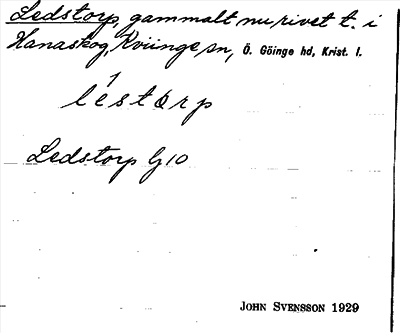 Ledstorp, gammalt nu rivet t. i
Hanaskog, Kviinge sn, Ö. Göinge hd, Krist. l.
lèstòrp
Ledstorp G 10
JOHN SVENSSON 1929